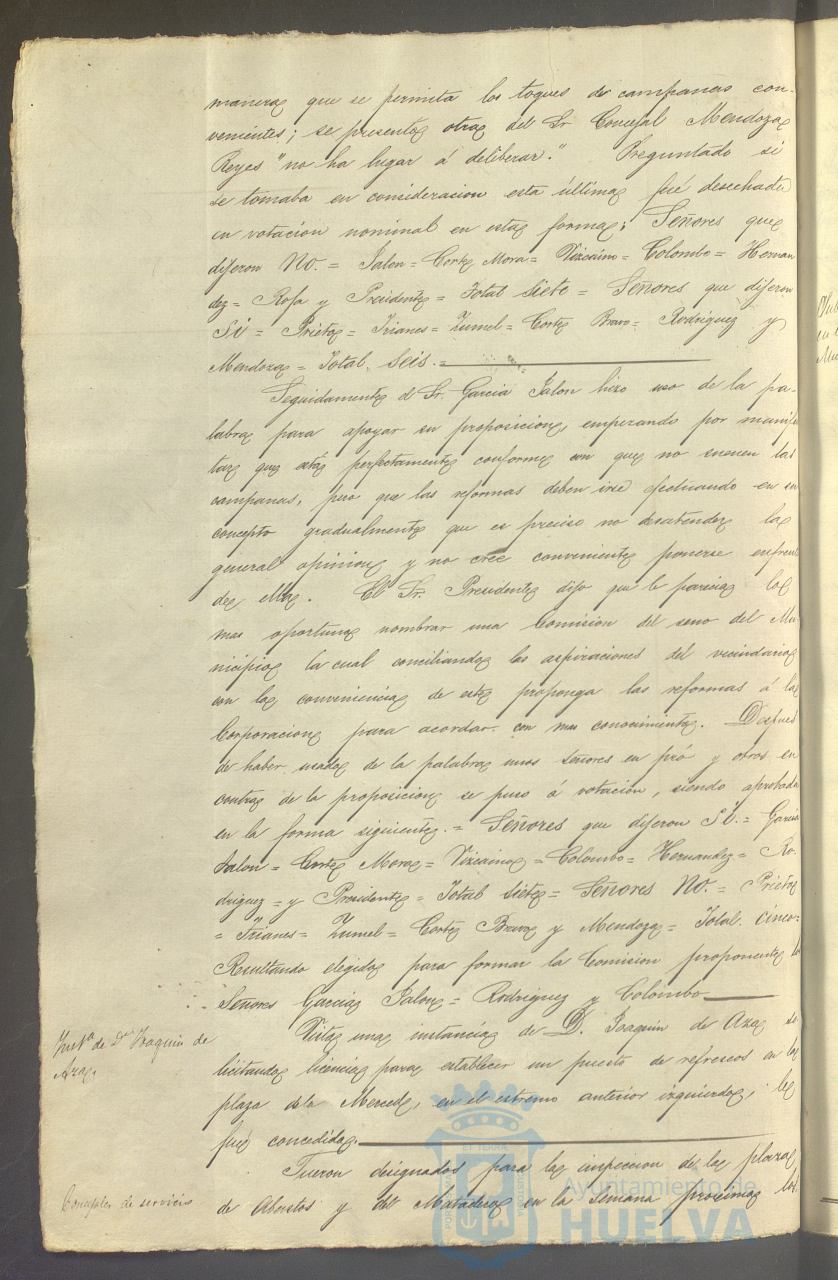 manera que se permita los toques de campanas con-
venientes; se presenta otra del Sr Concejal Mendoza
Reyes "no ha lugar á deliberar." Preguntado si
se tomaba en consideracion esta última fué desechada
en votacion nominal en esta forma; Señores que
dijeron No. = Jalon = Corte Mora = Vizcaino = Colombo = Hernan
dez = Rosa y Presidente = Total siete = Señores que dijeron
Si = Prieto = Trianes = Zumel = Corte Bravo = Rodriguez y
Mendoza = Total. seis. =
Seguidamente el Sr. Garcia Jalon hizo uso de la pa-
labra para apoyar su proposicion, empezando por manifes
tar que está perfectamente conforme con que no suenen las
campanas, pero que las reformas deben irse efectuando en su
concepto gradualmente que es preciso no desatender la
general opinion y no cree conveniente ponerse enfrente
de ella. El Sr. Presidente dijo que le parecia lo
mas oportuno nombrar una Comision del seno del Mu-
nicipio la cual conciliando las aspiraciones del vecindario
con la conveniencia de este proponga las reformas á la
Corporacion para acordar con mas conocimiento. Despues
de haber usado de la palabra unos señores en pró y otros en
contra de la proposicion se puso á votacion, siendo aprobada
en la forma siguiente. = Señores que dijeron Si. = Garcia
Jalon = Corte Mora = Vizcaino = Colombo = Hernandez = Ro-
driguez = y Presidente = Total siete = Señores No. = Prieto
= Trianes = Zumel = Corte Bravo y Mendoza = Total. cinco =
Resultando elegidos para formar la Comision proponente los
Señores Garcia Jalon = Rodriguez y Colombo
Inst.ª de Dn Joaquin de
Aza.
Vista una instancia de D. Joaquin de Aza so
licitando licencia para establecer un puesto de refrescos en la
plaza de la Merced, en el estremo anterior izquierdo, le
fué concedida.
Concejales de servicio
Fueron designados para la inspeccion de la plaza
de Abastos y del Matadero en la semana procsima los
Ayuntamiento de
HUELVA